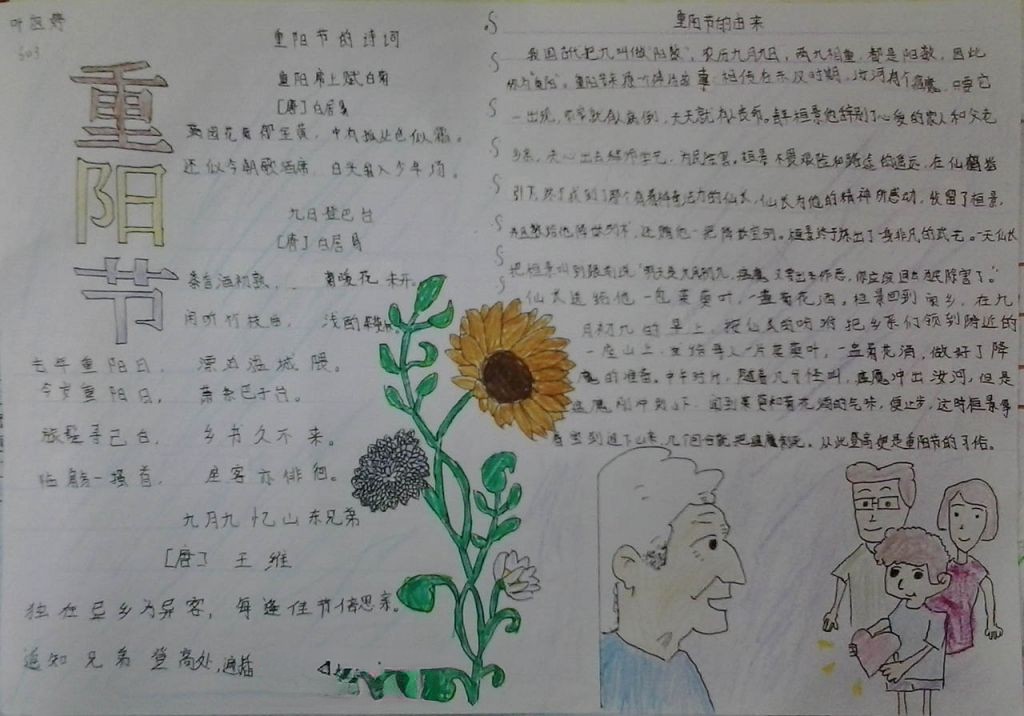 503
重阳节
重阳节的诗词
重阳席上赋白菊
[唐]白居易
满园花菊郁金黄,中有孤丛色似霜。
还似今朝歌酒席,白头翁入少年场。
九日登巴台
[唐]白居易
黍香酒初熟, 菊暖花未开。
闲听竹枝曲, 浅酌
去年重阳日, 漂泊湓城隈。
今岁重阳日, 萧条巴子台。
旅鬓寻已白, 乡书久不来。
临觞一搔首, 座客亦徘徊。
九月九忆山东兄弟
[唐]王维
独在异乡为异客,每逢佳节倍思亲。
遥知兄弟登高处,遍插
重阳节的由来
我国古代把九叫做"阳数",农历九月九日,两九相重,都是阳数,因此
称为"重阳"。重阳节来源 故事,相传在东汉时期,汝河有个瘟魔,只要它
一出现,家家就有人病倒,天天就有人丧命。 桓景他辞别了心爱的家人和父老
乡亲,决心出去 ,为民除害。桓景不畏艰险和路途的遥远,在仙鹤指
引下,终于找到了那个有着神奇法力的仙长,仙长为他的精神所感动,收留了桓景,
教给他降妖剑术,还赠他一把降妖宝剑。桓景终于练出了一身非凡的武艺。一天仙长
把桓景叫到跟前说:"明天是九月初九,瘟魔又要出来作恶,你应该回去为民除害了。"
仙长送给他一包茱萸叶,一盅菊花酒。桓景回到家乡,在九
月初九的早上,按仙长的吩咐把乡亲们领到附近的
一座山上,发给每人一片茱萸叶,一盅菊花酒,做好了降
魔的准备。中午时分,随着几声怪叫,瘟魔冲出汝河,但是
瘟魔刚冲到山下,闻到茱萸和菊花酒的气味,便止步,这时桓景拿
着宝剑追下山来,几个回合就把瘟魔刺死。从此登高便是重阳节的习俗。